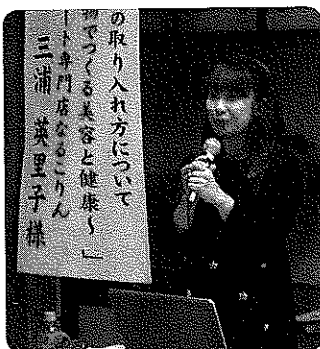 の取り入れ方について
物でつくる美容と健康〜」
ート専門店なるこりん
三浦 英里子様